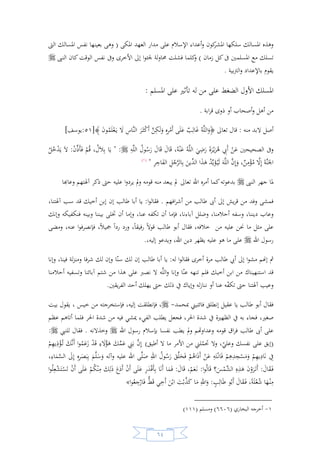 وهذه المسالك سلكها المشركون وأعداء الإسلام على مدار العهد المكي ( وهي بعينها نفس المسالك التي
تسلك مع المسلمين في كل زمان ) وكلما فشلت محاولة لجئوا إلى الأخرى وفي نفس الوقت كان النبي ﷺ
يقوم بالإعداد والتربية .
المسلك الأول الضغط على من له تأثير على المسلم :
من أهل وأصحاب أو ذوى قرابة .
أصل لابد منه : قال تعالى ﴿وَاللَّهُ غَالِبٌ عَلَى أَمْرِهِ وَلَكِنَّ أَكْثَرَ النَّاسِ لَا يَعْلَمُونَ ﴾[٥١:يوسف]
وفي الصحيحين عَنْ أَبِي هُرَيْرَةَ رَضِيَ اللَّهُ عَنْهُ، قَالَ: قَالَ رَسُولُ اللَّهِ ﷺ: " يَا بِلَالُ، قُمْ فَأَذِّنْ: لَا يَدْخُلُ
الجَنَّةَ إِلَّا مُؤْمِنٌ، وَإِنَّ اللَّهَ لَيُؤَيِّدُ هَذَا الدِّينَ بِالرَّجُلِ الفَاجِرِ " (١)
لما جهر النبى ﷺ بدعوته كما أمره الله تعالى لم يبعد منه قومه ولم يردوا عليه حتى ذكر آلهتهم وعابها
فمشي وفد من قريش إلى أبى طالب من أشرافهم . فقالوا: يا أبا طالب إن إبن أخيك قد سب آلهتنا،
وعاب ديننا، وسفه أحلامنا، وضلل آباءنا، فإما أن تكفه عنا، وإما أن تخلى بيننا وبينه فنكفيكه وإنك
على مثل ما نحن عليه من خلافه، فقال أبو طالب قولاً رفيقاً، ورد رداً جميلاً، فإنصرفوا عنه، ومضى
رسول الله ﷺ على ما هو عليه يظهر دين الله، ويدعو إليه.
ثم إنهم مشوا إلى أبى طالب مرة أخرى فقالوا له: يا أبا طالب إن لك سنًا وإن لك شرفا ومنزلة فينا، وإنا
قد استنهيناك من ابن أخيك فلم تنهه عنَّا وإنَّا والله لا نصبر على هذا من شتم آبائنا وتسفيه أحلامنا
وعيب آلهتنا حتى تكفه عنا أو ننازله وإياك في ذلك حتى يهلك أحد الفريقين.
فقال أبو طالب يا عقيل إنطلق فائتني بمحمد- ﷺ- فإنطلقت إليه، فإستخرجته من خيس ، يقول بيت
صغير، فجاء به فى الظهيرة فى شدة الحر، فجعل يطلب الفيء يمشى فيه من شدة الحر فلما أتاهم عظم
على أبى طالب فراق قومه وعداوتهم ولم يطب نفسا بإسلام رسول الله ﷺ وخذلانه . فقال للنبى ﷺ:
(إبق على نفسك وعليّ، ولا تحمّلني من الأمر ما لا أطيق) إِنَّ بَنِي عَمِّكَ هَؤُلَاءِ قَدْ زَعَمُوا أَنَّكَ تُؤْذِيهِمْ
فِي نَادِيهِمْ وَمَسْجِدِهِمْ فَانْتَهِ عَنْ أَذَاهُمْ فَحَلَّقَ رَسُولُ اللَّهِ صَلَّى الله عليه وآله وَسَلَّمَ بِبَصَرِهِ إِلَى السَّمَاءِ،
فَقَالَ: أَتَرَوْنَ هَذِهِ الشَّمْسَ؟ قَالُوا: نَعَمْ، قَالَ: فَمَا أَنَا بِأَقْدَرَ عَلَى أَنْ أَدَعَ ذَلِكَ مِنْكُمْ عَلَى أَنْ تُشْعِلُوا
مِنْهَا شُعْلَةً، فَقَالَ أَبُو طَالِبٍ: وَاللَّهِ مَا كَذَبْتُ ابْنَ أَخِي قَطُّ فَارْجِعُوا»
١- أخرجه البخاري (٦٦٠٦) ومسلم (١١١)
٦٤